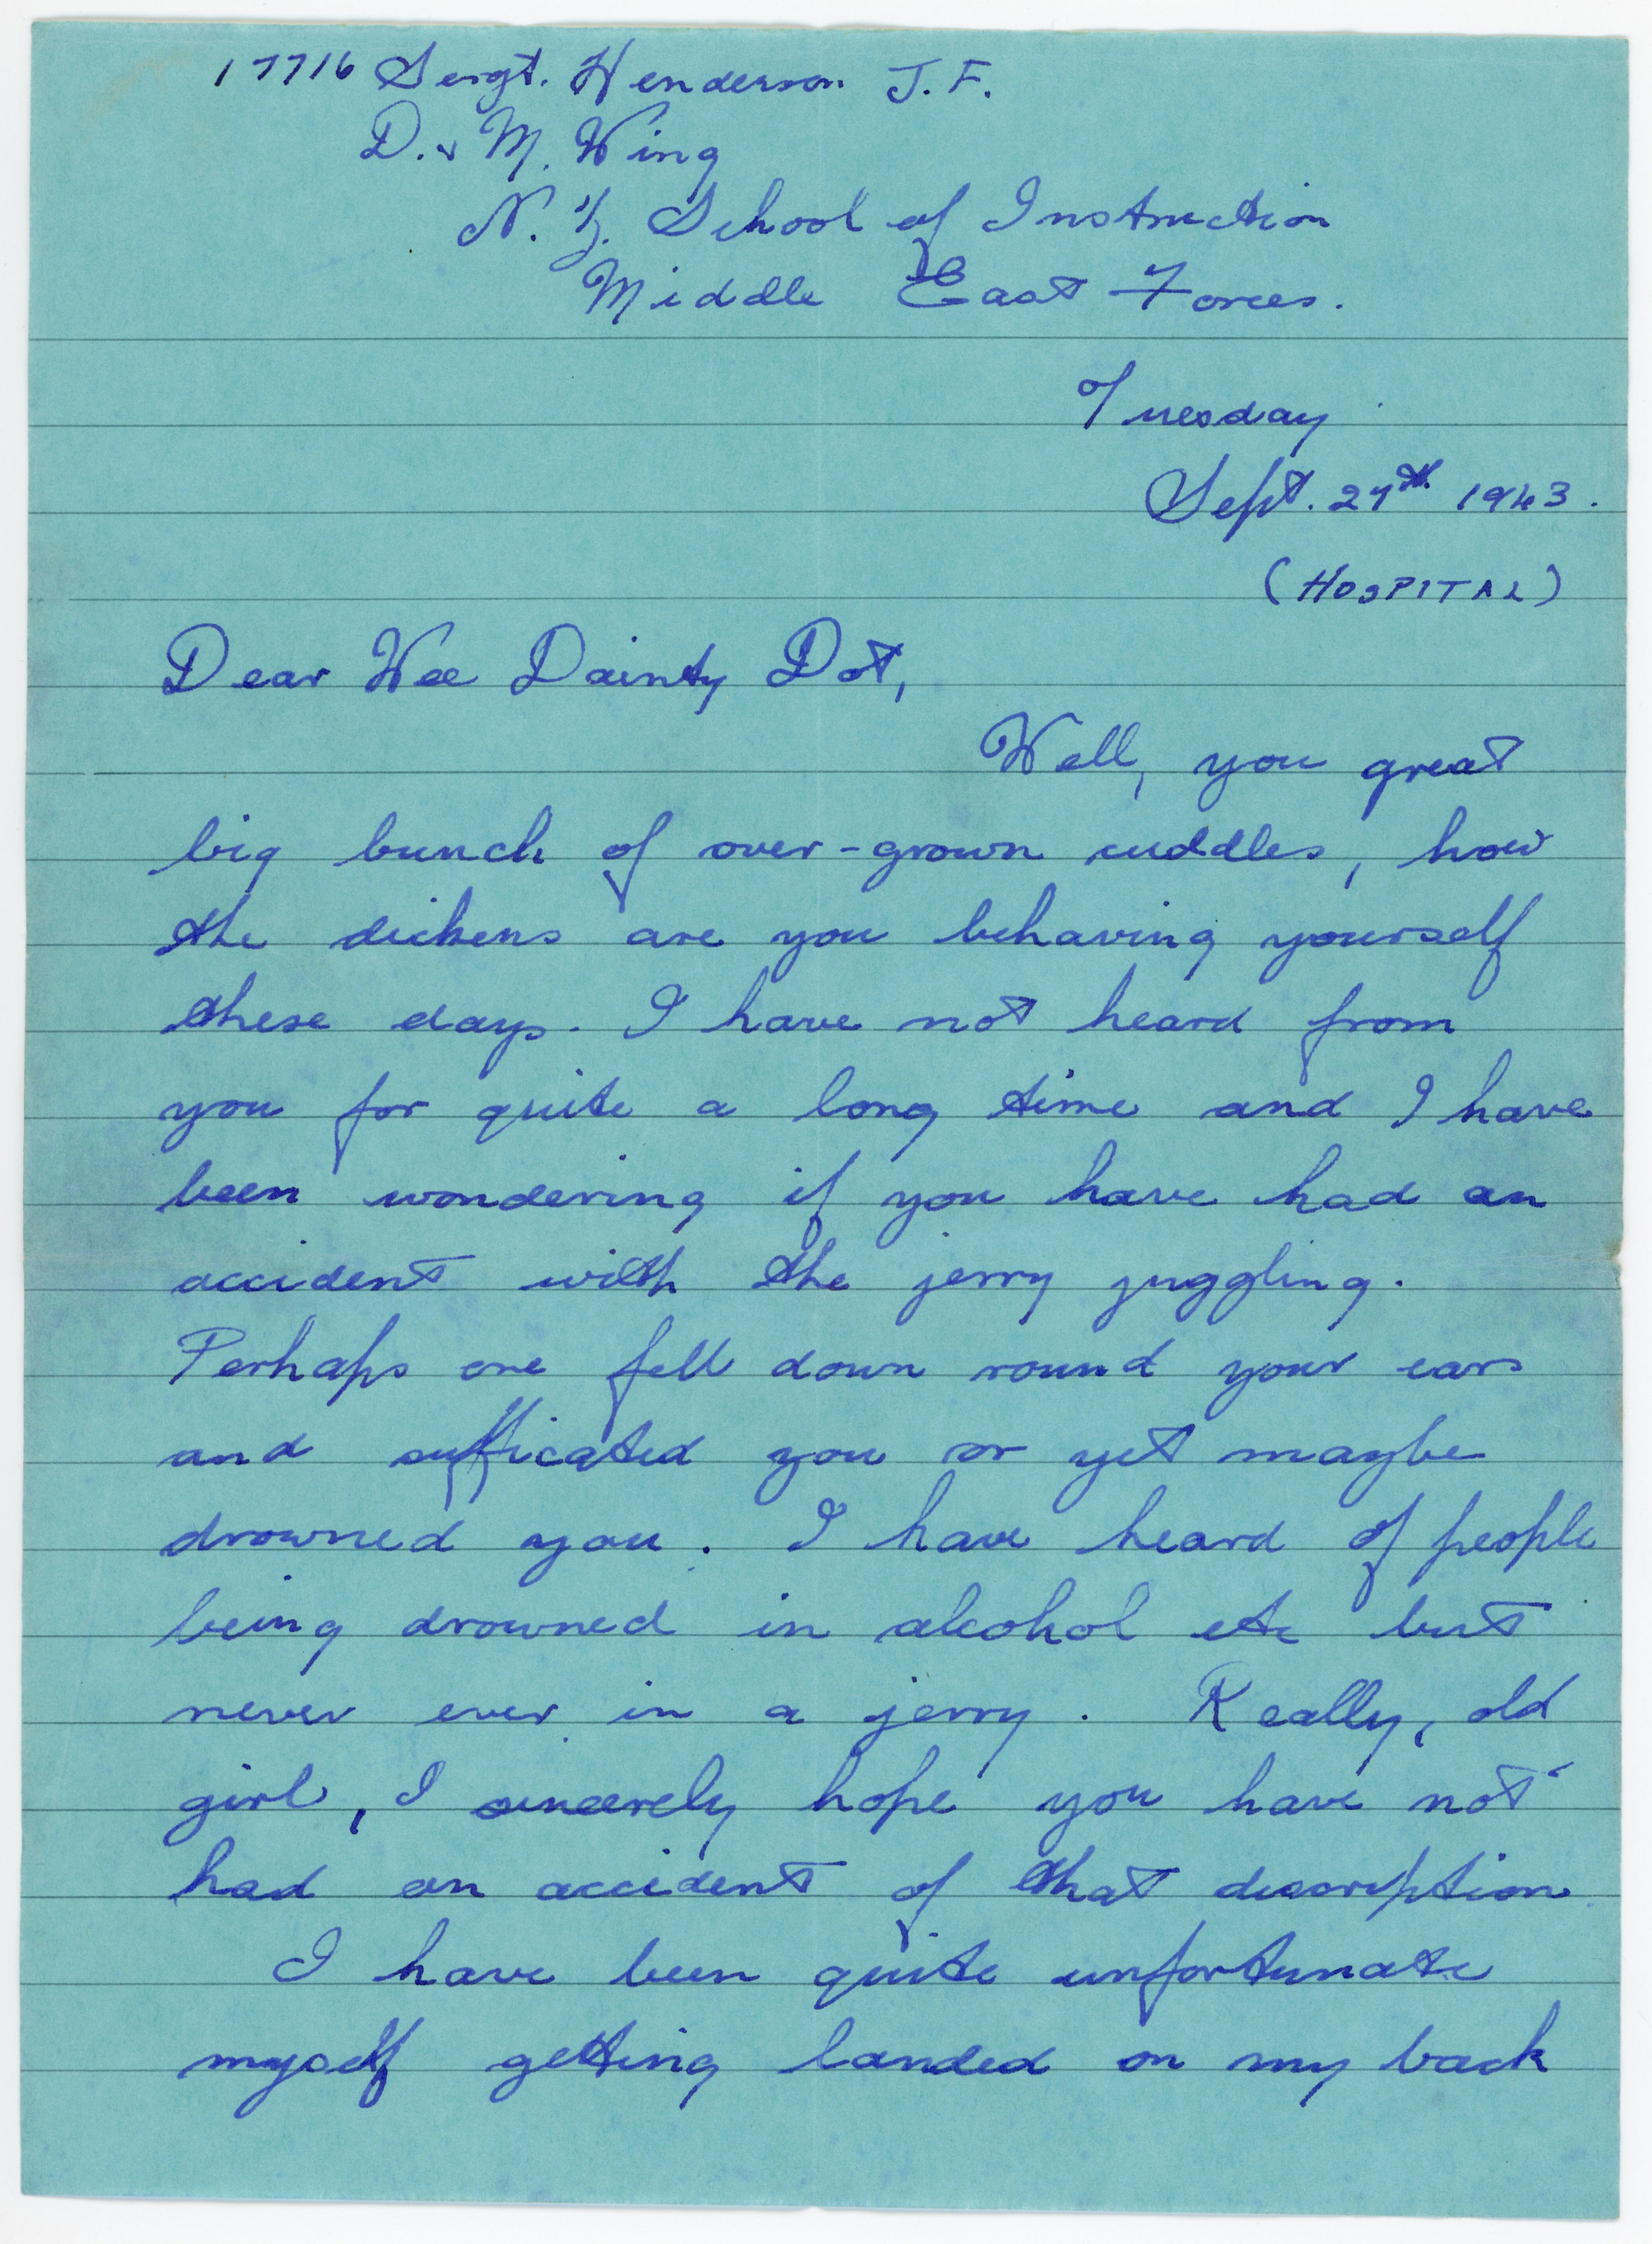 17716 Sergt. Henderson J. F.
D. & M. Wing
N. Z. School of Instruction
Middle East Forces.
Tuesday
Sept. 27th. 1943.
(HOSPITAL)
Dear Wee Dainty Dot,
Well, you great
big bunch of over-grown cuddles, how
the dickens are you behaving yourself
these days. I have not heard from
you for quite a long time and I have
been wondering if you have had an
accident with the jerry juggling.
Perhaps one fell down round your ears
and sufficated you or yet maybe
drowned you. I have heard of people
being drowned in alcohol etc but
never ever in a jerry. Really, old
girl, I sincerely hope you have not
had an accident of that description
I have been quite unfortunate
myself getting landed on my back